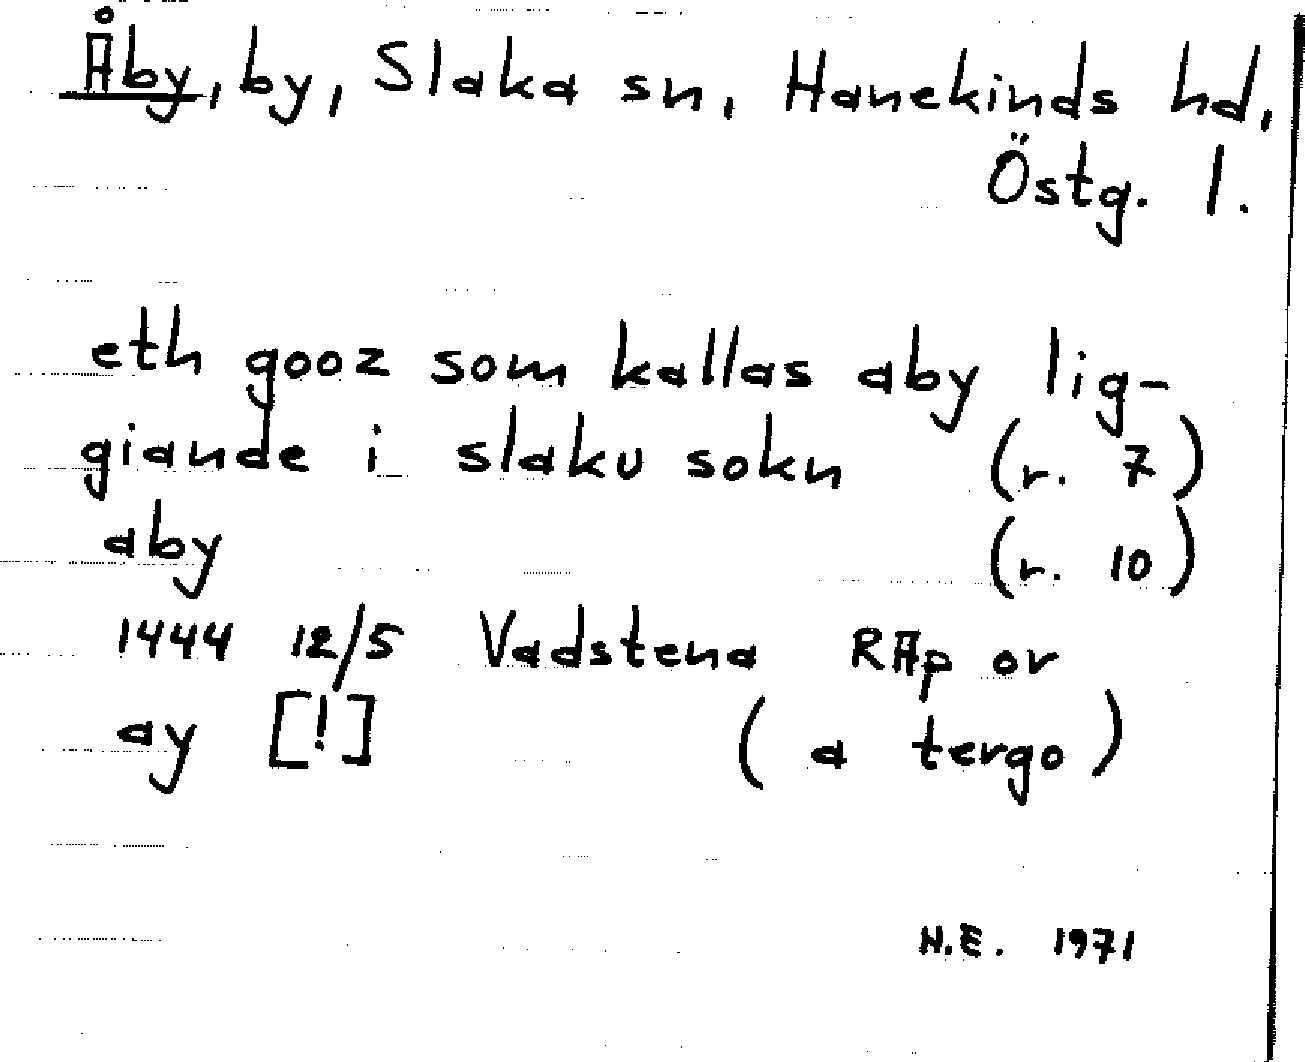 Åby, by, Slaka sn, Hanekinds hd,
Östg. l.
eth gooz som kallas aby lig-
giande i slaku sokn (r. 7)
aby (r. 10)
1444 12/5 Vadstena RAp or
ay [!] (a tergo)
N.E. 1971